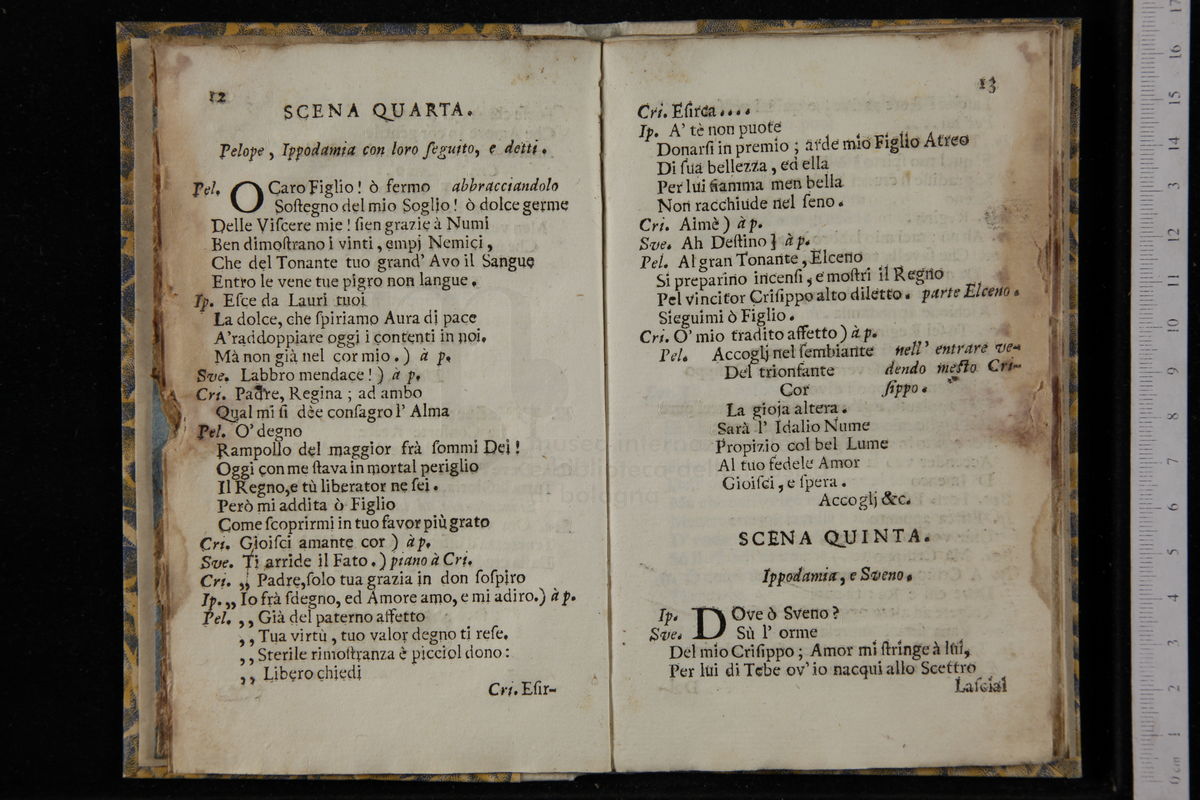 12
SCENA QUARTA.
Pelope, Ippodamia con loro ſeguito, e detti.
Pel. O Caro Figlio! ò fermo abbracciandolo
Soſtegno del mio Soglio! ò dolce germe
Delle Viſcere mie! ſien grazie à Numi
Ben dimoſtrano i vinti, empj Nemici,
Che del Tonante tuo grand' Avo il Sangue
Entro le vene tue pigro non langue.
Ip. Eſce da Lauri tuoi
La dolce, che ſpiriamo Aura di pace
A'raddoppiare oggi i contenti in noi.
Mà non già nel cor mio.) à p.
Sve. Labbro mendace!) à p.
Cri. Padre, Regina; ad ambo
Qual mi ſi dèe conſagro l' Alma
Pel. O' degno
Rampollo del maggior frà ſommi Dei!
Oggi con me ſtava in mortal periglio
Il Regno,e tù liberator ne ſei.
Però mi addita ò Figlio
Come ſcoprirmi in tuo favor più grato
Cri. Gioiſci amante cor) à p.
Sve. Ti arride il Fato.) piano à Cri.
Cri. ,, Padre,ſolo tua grazia in don ſoſpiro
Ip. ,, Io frà ſdegno, ed Amore amo, e mi adiro.) à p.
Pel. ,, Già del paterno affetto
,, Tua virtù, tuo valor degno ti reſe.
,, Sterile rimoſtranza è picciol dono:
,, Libero chiedi
Cri. Eſir-
13
Cri. Eſirca....
Ip. A' tè non puote
Donarſi in premio; arde mio Figlio Atreo
Di ſua bellezza, ed ella
Per lui fiamma men bella
Non racchiude nel ſeno.
Cri. Aimè) à p.
Sve. Ah Deſtino) à p.
Pel. Al gran Tonante, Elceno
Si preparino incenſi, e moſtri il Regno
Pel vincitor Criſippo alto diletto. parte Elceno.
Sieguimi ò Figlio.
Cri. O' mio tradito affetto) à p.
Pel. Accoglj nel ſembiante nell' entrare ve-
Del trionfante dendo meſto Cri-
Cor ſippo.
La gioja altera.
Sarà l' Idalio Nume
Propizio col bel Lume
Al tuo fedele Amor
Gioiſci, e ſpera.
Accoglj &c.
SCENA QUINTA.
Ippodamia, e Sveno.
Ip. DOve ò Sveno?
Sve. Sù l' orme
Del mio Criſippo; Amor mi ſtringe à lui,
Per lui di Tebe ov' io nacqui allo Scettro
Laſciai